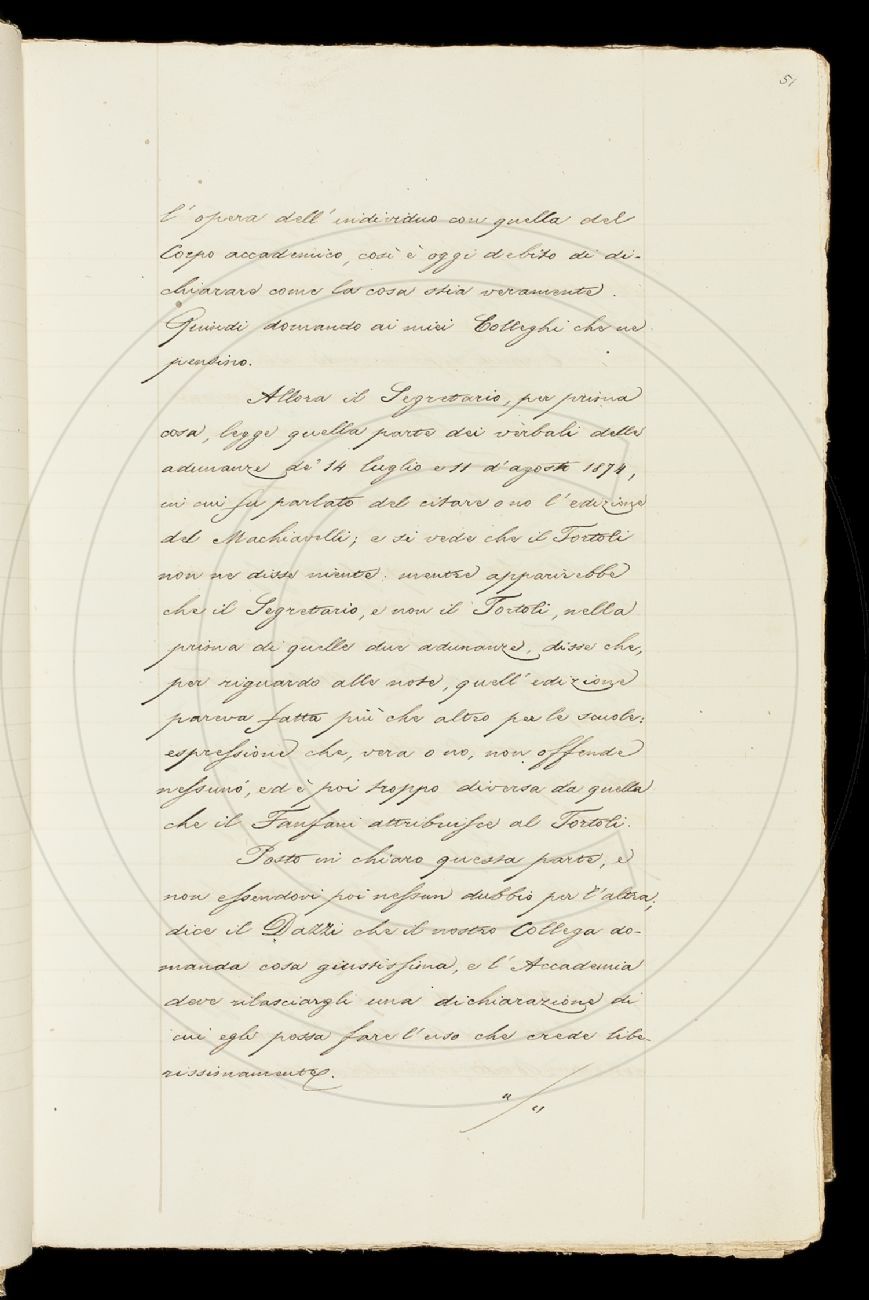 51
l'opera dell'individuo con quella del
Corpo accademico, così è oggi debito di di-
chiarare come la cosa stia veramente.
Quindi domando ai miei Colleghi che ne
pensino.
Allora il Segretario, per prima
cosa, legge quella parte dei verbali delle
adunanze de' 14 luglio e 11 d'agosto 1874,
in cui fu parlato del citare o no l'edizione
del Machiavelli; e si vede che il Tortoli
non ne disse niente: mentre apparirebbe
che il Segretario, e non il Tortoli, nella
prima di quelle due adunanze, disse che,
per riguardo alle note, quell'edizione
pareva fatta più che altro per le scuole:
espressione che, vera o no, non offende
nessuno, ed è poi troppo diversa da quella
che il Fanfani attribuisce al Tortoli.
Posto in chiaro questa parte, e
non essendovi poi nessun dubbio per l'altra,
dice il Dazzi che il nostro Collega do-
manda cosa giustissima, e l'Accademia
deve rilasciargli una dichiarazione di
cui egli possa fare l'uso che crede libe-
rissimamente.
"/"